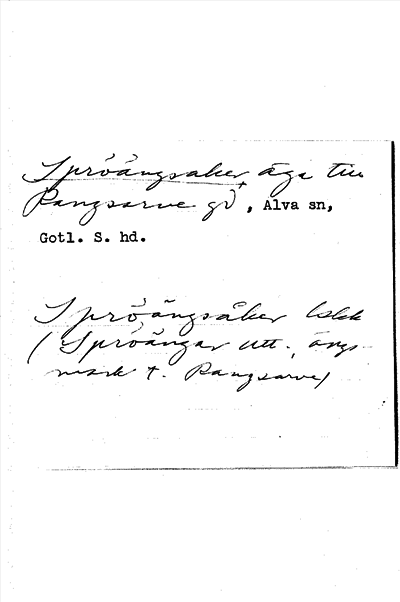 Spröängsaker, äga till
Rangsarve gd, Alva sn,
Gotl. S. hd.
Spröängsåker
(Spröängar utt., ängs-
mark t. Rangsarve)